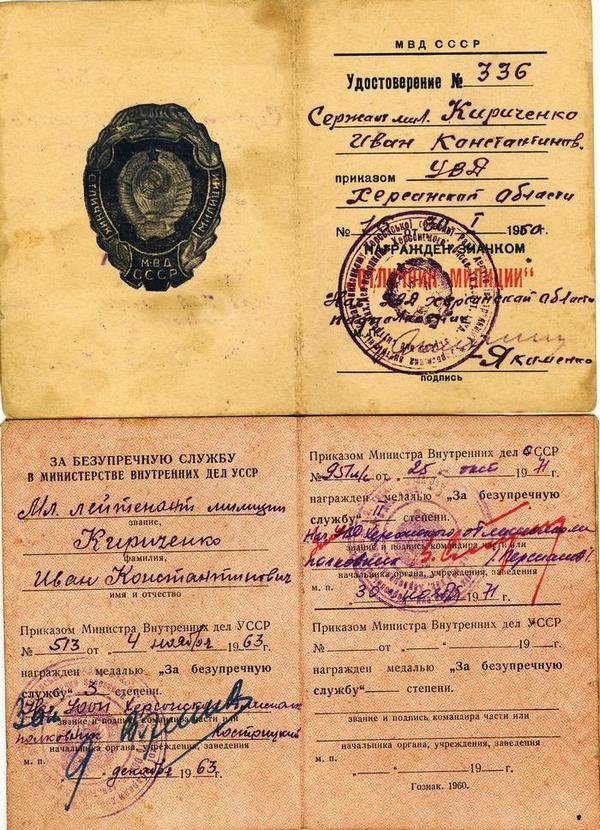 ОТЛИЧНИК МИЛИЦИИ
МВД
СССР
МВД СССР
Удостоверение № 336
Сержант мил. Кириченко
Иван Константинов.
приказом УВД
Херсонской области
№ от I 1950 г.
НАГРАЖДЕН ЗНАКОМ
"ОТЛИЧНИК МИЛИЦИИ"
Нач. УВД Херсонской области
Якименко
подпись
ЗА БЕЗУПРЕЧНУЮ СЛУЖБУ
В МИНИСТЕРСТВЕ ВНУТРЕННИХ ДЕЛ УССР
Мл. лейтенант милиции
звание,
Кириченко
фамилия,
Иван Константинович
имя и отчество
Приказом Министра Внутренних дел УССР
№ 513 от „ 4 ноября 1963 г.
награжден медалью „За безупречную
службу" 3 степени.
звание и подпись командира части или
полковник Костицкий
начальника органа, учреждения, заведения
м. п. 9 декабря 1963 г.
Приказом Министра Внутренних дел СССР
№ 957 л/с от „ 25 окт 1971
награжден медалью „За безупречную
службу" II степени.
звание и подпись командира части или
полковник
начальника органа, учреждения, заведения
м. п. „ 30 ноября 1971
Приказом Министра Внутренних дел УССР
№ от „ " 19 г.
награжден медалью „За безупречную
службу" степени.
звание и подпись командира части или
начальника органа, учреждения, заведения
м. п. „ " 19 г.
Гознак. 1960.